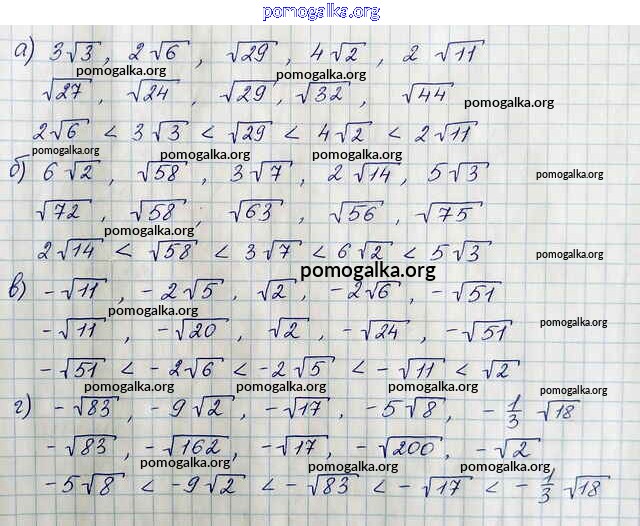 pomogalka.org
а) 3√3, 2√6, √29, 4√2, 2 √11
pomogalka.org pomogalka.org
√27, √24, √29, √32, √44
pomogalka.org
2√6 < 3√3 < √29 < 4√2 < 2√11
pomogalka.org pomogalka.org pomogalka.org
б) 6√2, √58, 3√7, 2√14, 5√3
pomogalka.org
√72, √58, √63, √56, √75
pomogalka.org
2√14 < √58 < 3√7 < 6√2 < 5√3
pomogalka.org
pomogalka.org
в) -√11, -2√5, √2, -2√6, -√51
pomogalka.org
-√11, -√20, √2, -√24, -√51
pomogalka.org
-√51 < -2√6 < -2√5 < -√11 < √2
pomogalka.org pomogalka.org pomogalka.org pomogalka.org
г) -√83, -9√2, -√17, -5√8, -1/3 √18
-√83, -√162, -√17, -√200, -√2
pomogalka.org pomogalka.org pomogalka.org
-5√8 < -9√2 < -√83 < -√17 < -1/3 √18